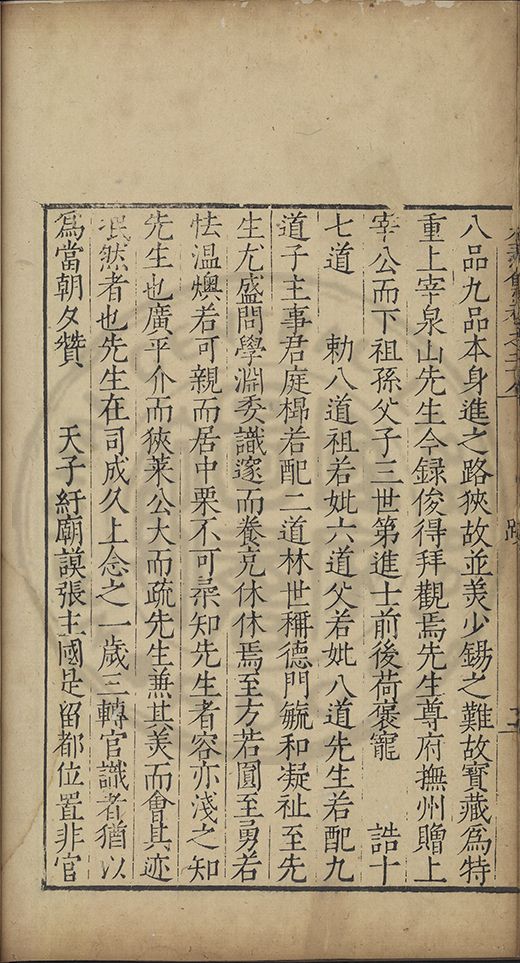 八品九品本身進之路狹故並美少錫之難故寳藏爲特
重上宰泉山先生今録俊得拜觀焉先生尊府撫州贈上
宰公而下祖孫父子三世第進士前後荷褒寵　誥十
七道　勅八道祖若妣六道父若妣八道先生若配九
道子主事君庭㭿若配二道林世稱德門毓和凝祉至先
生尤盛問學淵委識邃而養克休休焉至方若圓至勇若
怯温燠若可親而居中栗不可㬅知先生者容亦淺之知
先生也廣平介而狹萊公大而疏先生兼其美而會其迹
泯然者也先生在司成久上念之一歲三轉官識者猶以
爲當朝夕贊　天子紆廟謨張主國是留都位置非官